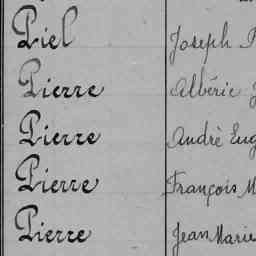 Piel Joseph
Pierre Albéric
Pierre Andrè Eug
Pierre François M
Pierre Jean Marie